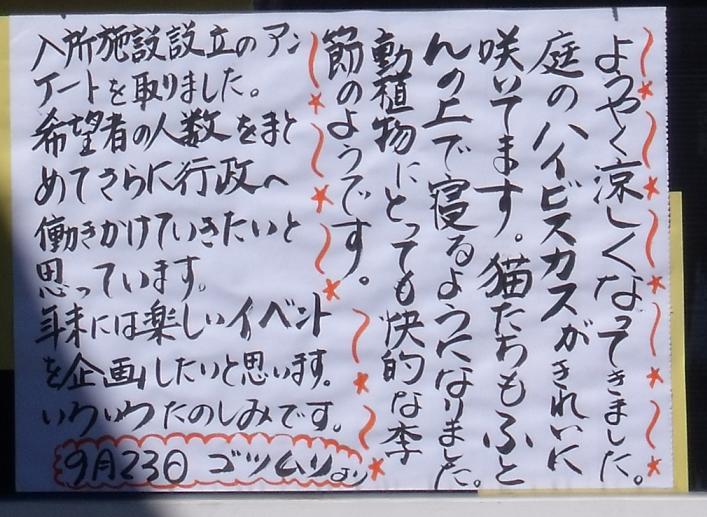 ようやく涼しくなってきました。
庭のハイビスカスがきれいに
咲いてます。猫たちもふと
んの上で寝るようになりました。
動植物にとっても快的な季
節のようです。
入所施設設立のアン
ケートを取りました。
希望者の人数をまと
めてさらに行政へ
働きかけていきたいと
思っています。
年末には楽しいイベント
を企画したいと思います。
いろいろたのしみです。
9月23日 ゴツムリより